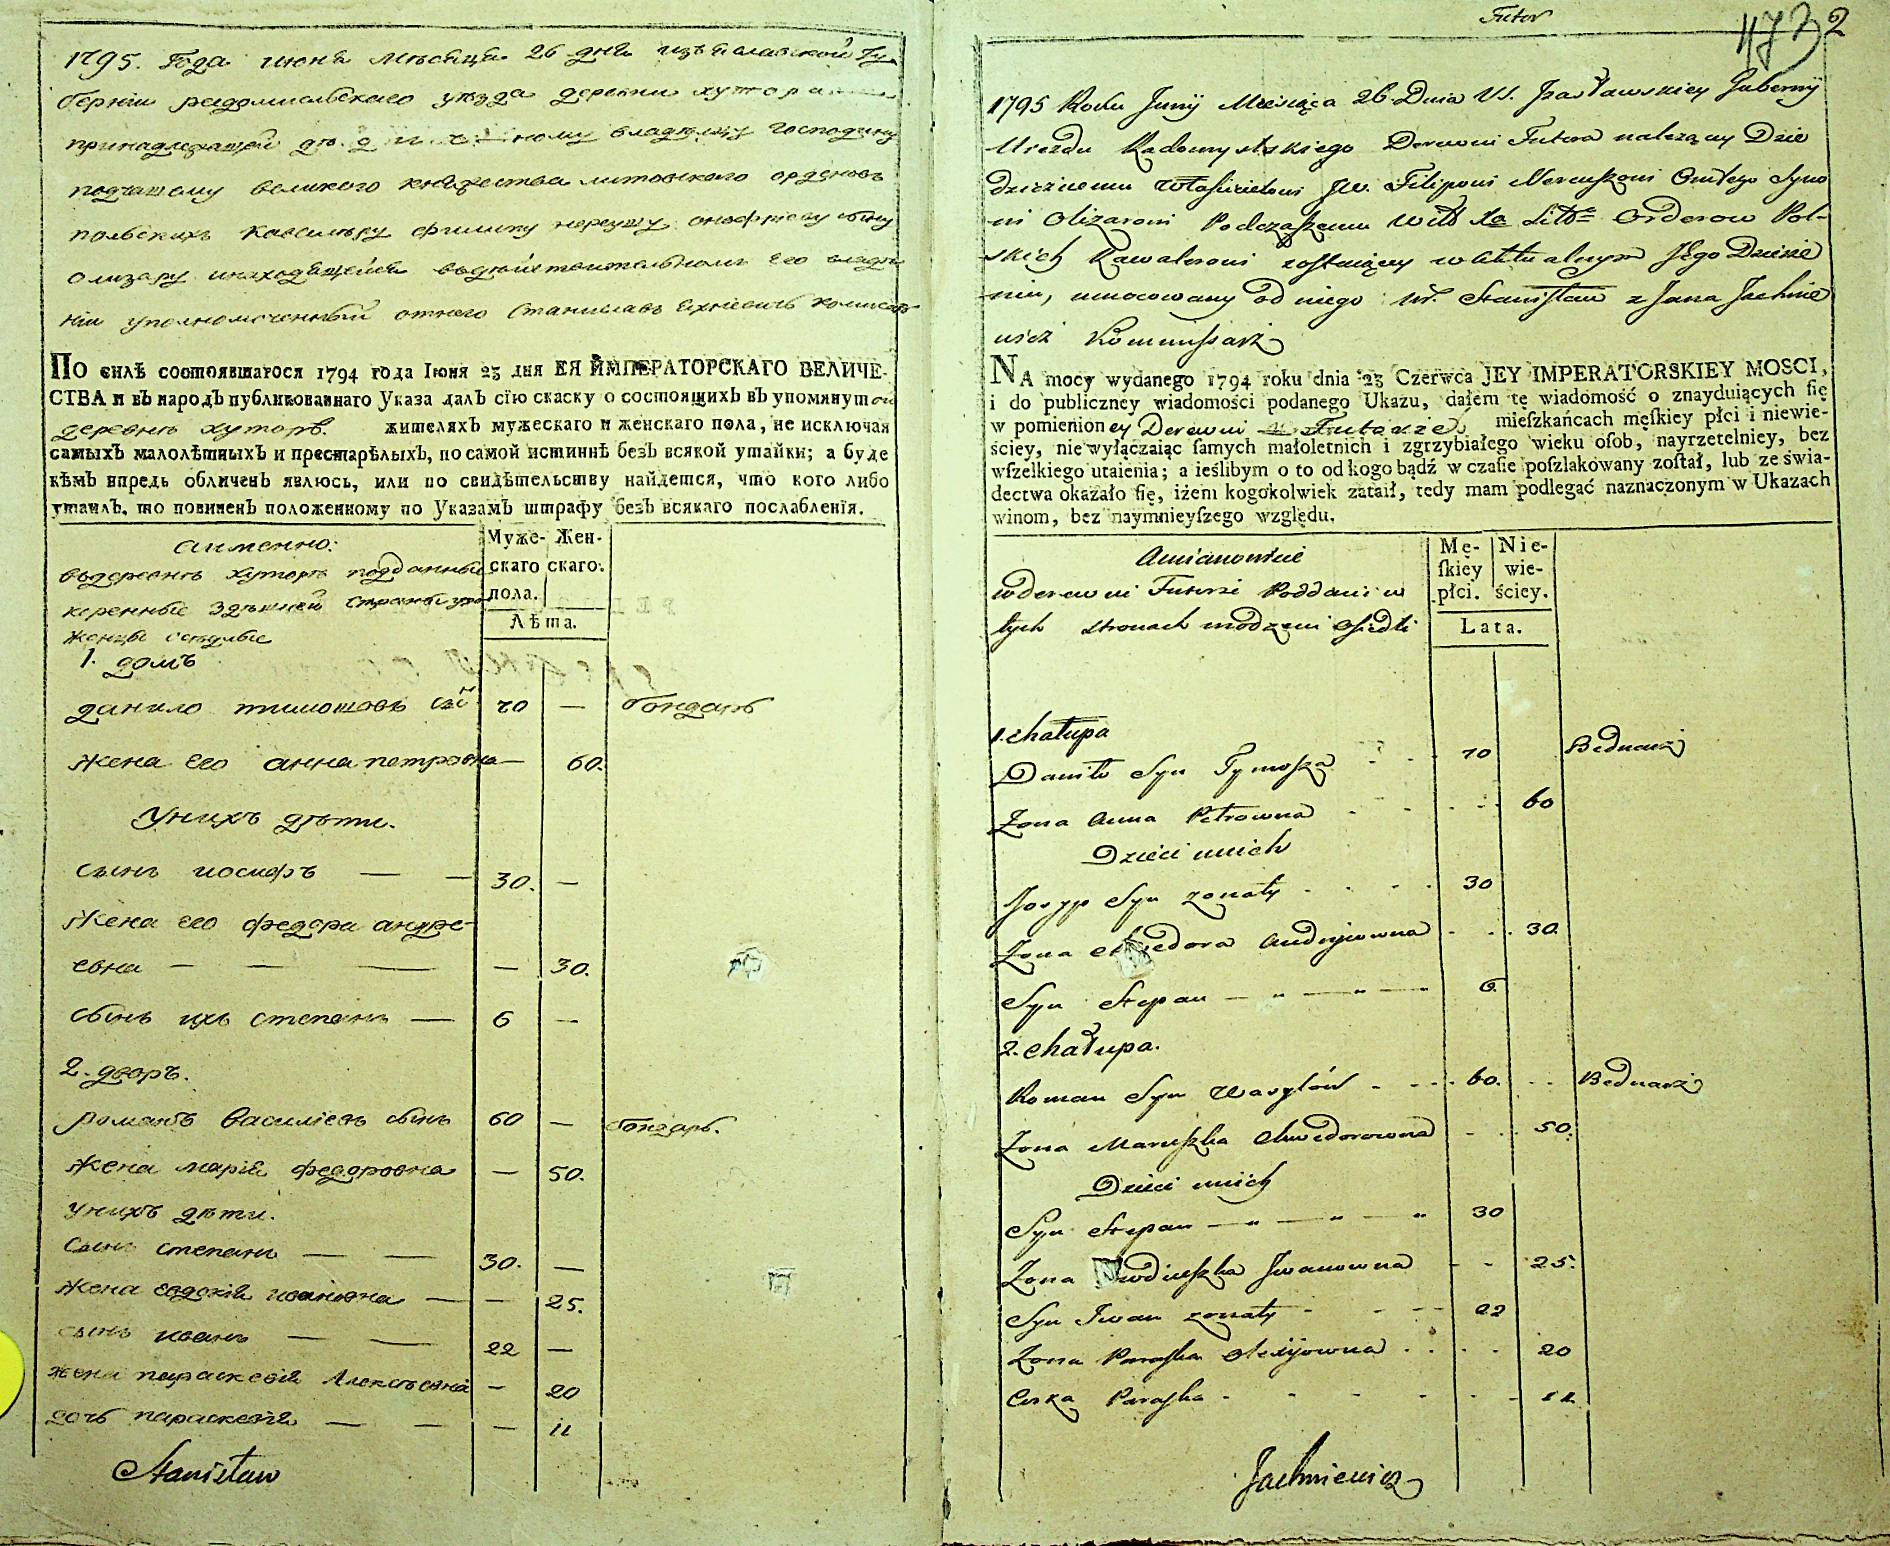 1795. Года июня мѣсяца 26 дня изъяславской гу
берніи радомисльскаго уѣзда деревни хутора
принадлежащей ному владѣлцу господину
подчашему великого княжества литовского орденовъ
польскихъ кавалѣру филипу нереушу онофріеву сыну
олизару инаходящейся вьдействительномъ его владѣ
ніи уполномоченный отнего Станиславъ Яхнѣевичъ комисаръ
ПО силѣ состоявшагося 1794 года Іюня 23 дня ЕЯ ИМПЕРАТОРСКАГО ВЕЛИЧЕ-
СТВА и въ народъ публикованнаго Указа далъ сїю скаску о состоящихъ въ упомянутой
деревнѣ хуторѣ. жителяхъ мужескаго и женскаго пола, не исключая
самыхъ малолѣтныхъ и престарѣлыхъ, по самой истиннѣ безъ всякой утайки; а буде
кѣмъ впредь обличенъ явлюсь, или по свидѣтельству найдется, что кого либо
утаилъ, то повиненъ положенному по Указамъ штрафу безъ всякаго послабленїя.
аименно:
вьдеревнѣ хуторѣ подданные
коренные здѣшней страны уро
женцы осѣдлые
Муже- Жен-
скаго скаго.
пола.
Лѣта.
1. домъ
данило тимошовъ сынъ 70 — бондарь
жена его анна петровна — 60.
Унихъ дѣти.
сынъ иосифъ — — 30. —
жена его федора андре-
евна — — — — 30.
сынъ ихъ степанъ — 6 —
2. дворъ.
романъ василіевъ сынъ 60 — бондарь.
жена марія федоровна — 50.
унихъ дѣти.
сынъ степанъ — — 30. —
жена евдокія ивановна — — 25.
сынъ иванъ — — 22 —
жена параскевія Алексѣевна — 20
дочь параскевія — — — 11
Stanisław
Futor
473 2
1795 Roku Junij Miesiąca 26 Dnia W. Jzasławskiey Guberniy
Urezdu Radomyslskiego Derewni Futora nalezącey Dzie
dzicznemu Włascicielowi JW. Filipowi Nereuszowi Onufrego Syno
wi Olizarowi Podczaszemu Wiel. Xa Litt. Orderow Pol-
skich Kawalerowi zostaiącey w aktualnym Jego Dziedzic
niu, umocowany od niego Stanisław z Jana Jachnie
wicz Kommissarz
NA mocy wydanego 1794 roku dnia 23 Czerwca JEY IMPERATORSKIEY MOSCI,
i do publiczney wiadomości podanego Ukazu, dałem tę wiadomość o znayduiących ſię
w pomienioney Derewni Futorze mieſzkańcach męſkiey płci i niewie-
ściey, nie wyłączaiąc ſamych małoletnich i zgrzybiałego wieku oſob, nayrzetelniey, bez
wſzelkiego utaienia; a ieślibym o to od kogo bądź w czaſie poſzlakowany zoſtał, lub ze świa-
dectwa okazało ſię, iżem kogokolwiek zataił, tedy mam podlegać naznaczonym w Ukazach
winom, bez naymnieyſzego względu.
Amianowicie
w derewni Futorze Poddani w
tych stronach urodzeni Osiedli
Mę- Nie-
ſkiey wie-
płci. ściey.
Lata.
1. chałupa
Daniło Syn Tymosza 70 Bednarz
Zona Anna Petrowna 60
Dzieci unich
Josyp Syn zonaty 30
Zona Chwedora Andryiowna 30.
Syn Stepan — " — " — 6.
2. chałupa.
Roman Syn Wasylów 60. Bednarz
Zona Maruszka Chwedorowna 50.
Dzieci unich
Syn Stepan — " — " — " 30
Zona wdiuszka Jwanowna 25.
Syn Iwan zonaty 22
Zona Paraska Olexijowna 20
Corka Paraska 11.
Jachniewicz